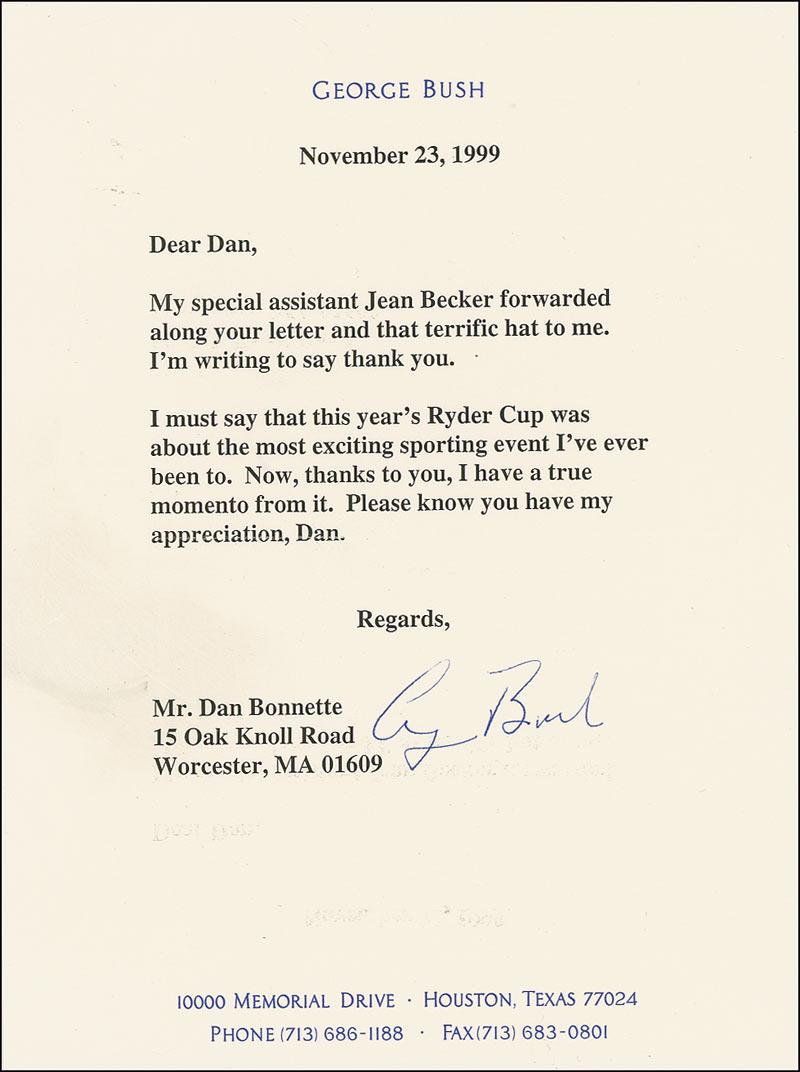 GEORGE BUSH
November 23, 1999
Dear Dan,
My special assistant Jean Becker forwarded
along your letter and that terrific hat to me.
I'm writing to say thank you.
I must say that this year's Ryder Cup was
about the most exciting sporting event I've ever
been to. Now, thanks to you, I have a true
momento from it. Please know you have my
appreciation, Dan.
Regards,
Gg Bush
Mr. Dan Bonnette
15 Oak Knoll Road
Worcester, MA 01609
10000 MEMORIAL DRIVE · HOUSTON, TEXAS 77024
PHONE (713) 686-1188 · FAX (713) 683-0801